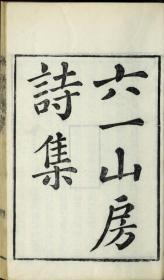 六一山房
詩集